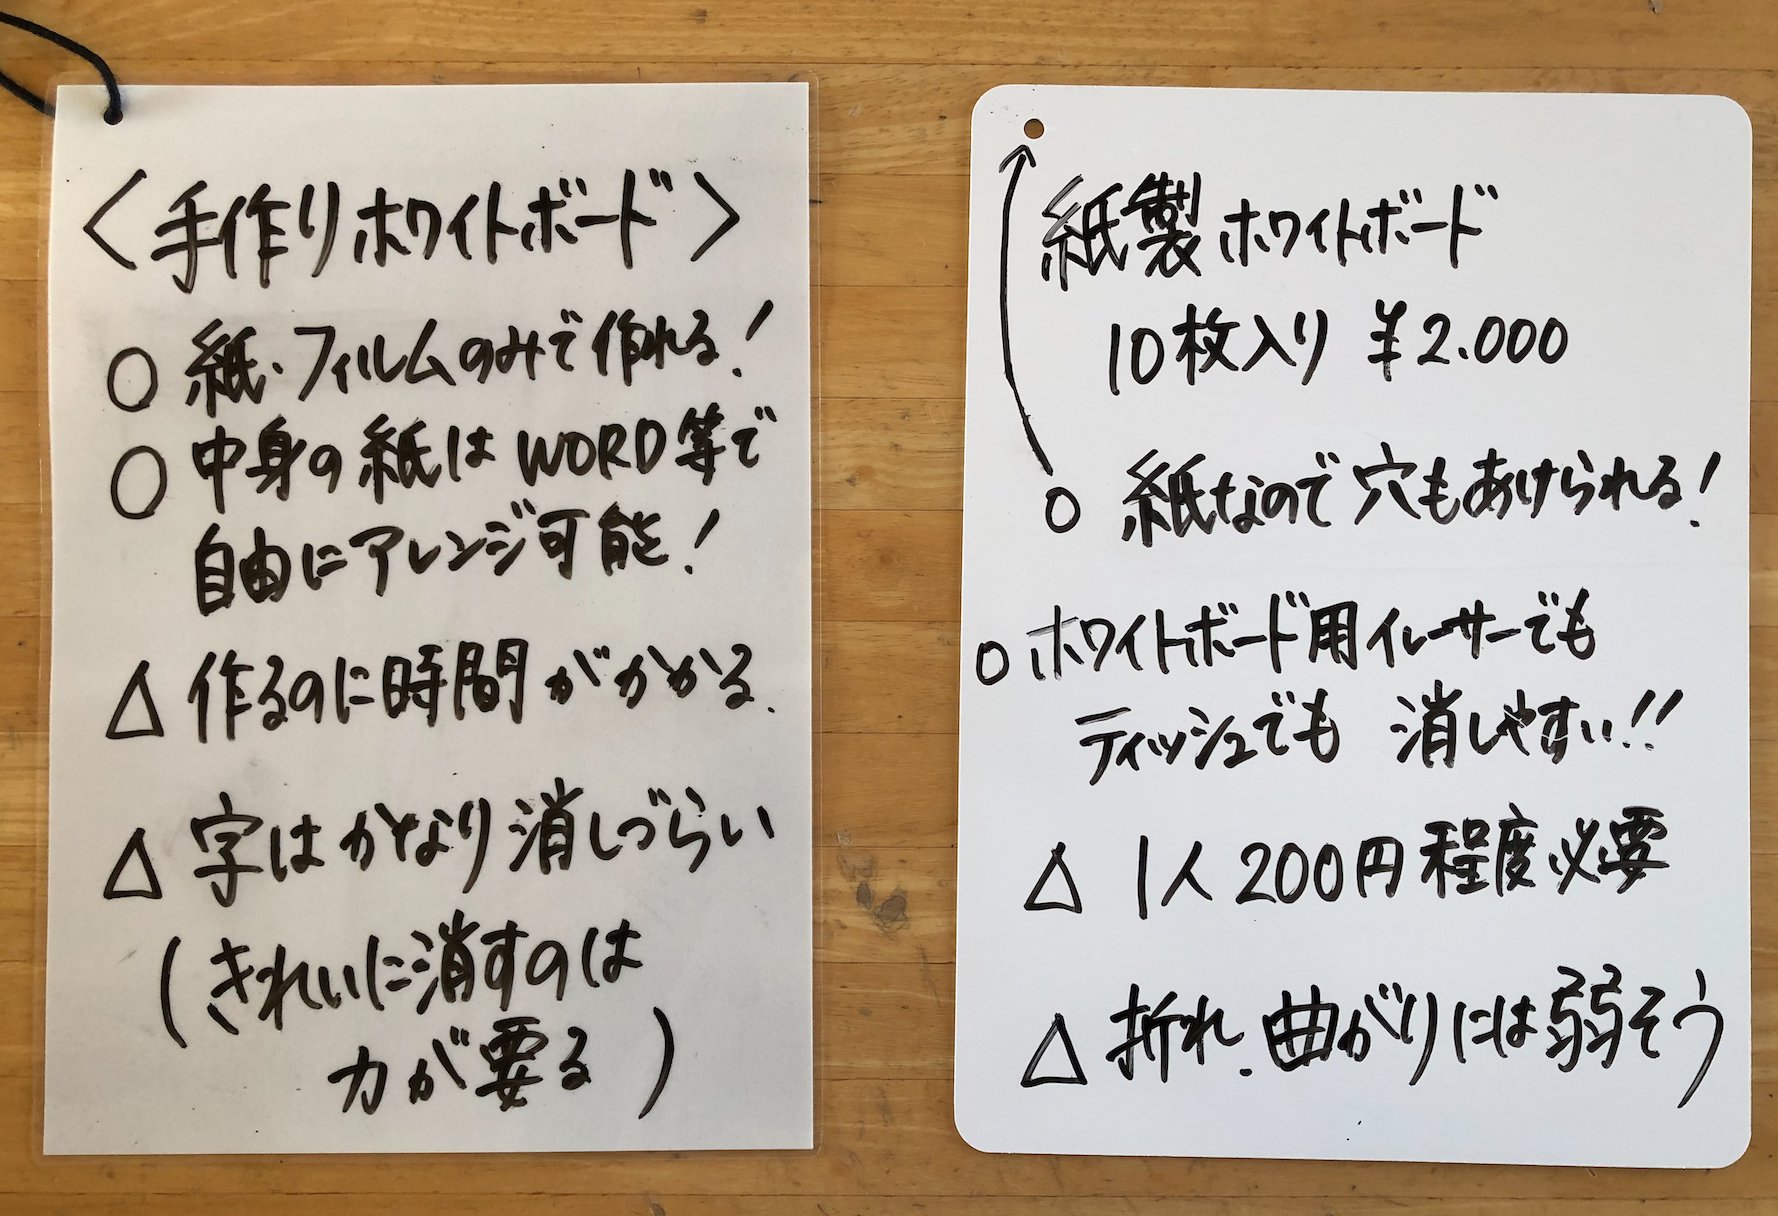 〈手作りホワイトボード〉
○ 紙・フィルムのみで作れる!
○ 中身の紙はWORD等で
自由にアレンジ可能!
△ 作るのに時間がかかる.
△ 字はかなり消しづらい
(きれいに消すのは
力が要る)
紙製ホワイトボード
10枚入り ¥2.000
○ 紙なので穴もあけられる!
○ ホワイトボード用イレーサーでも
ティッシュでも 消しやすい!!
△ 1人200円程度必要
△ 折れ.曲がりには弱そう